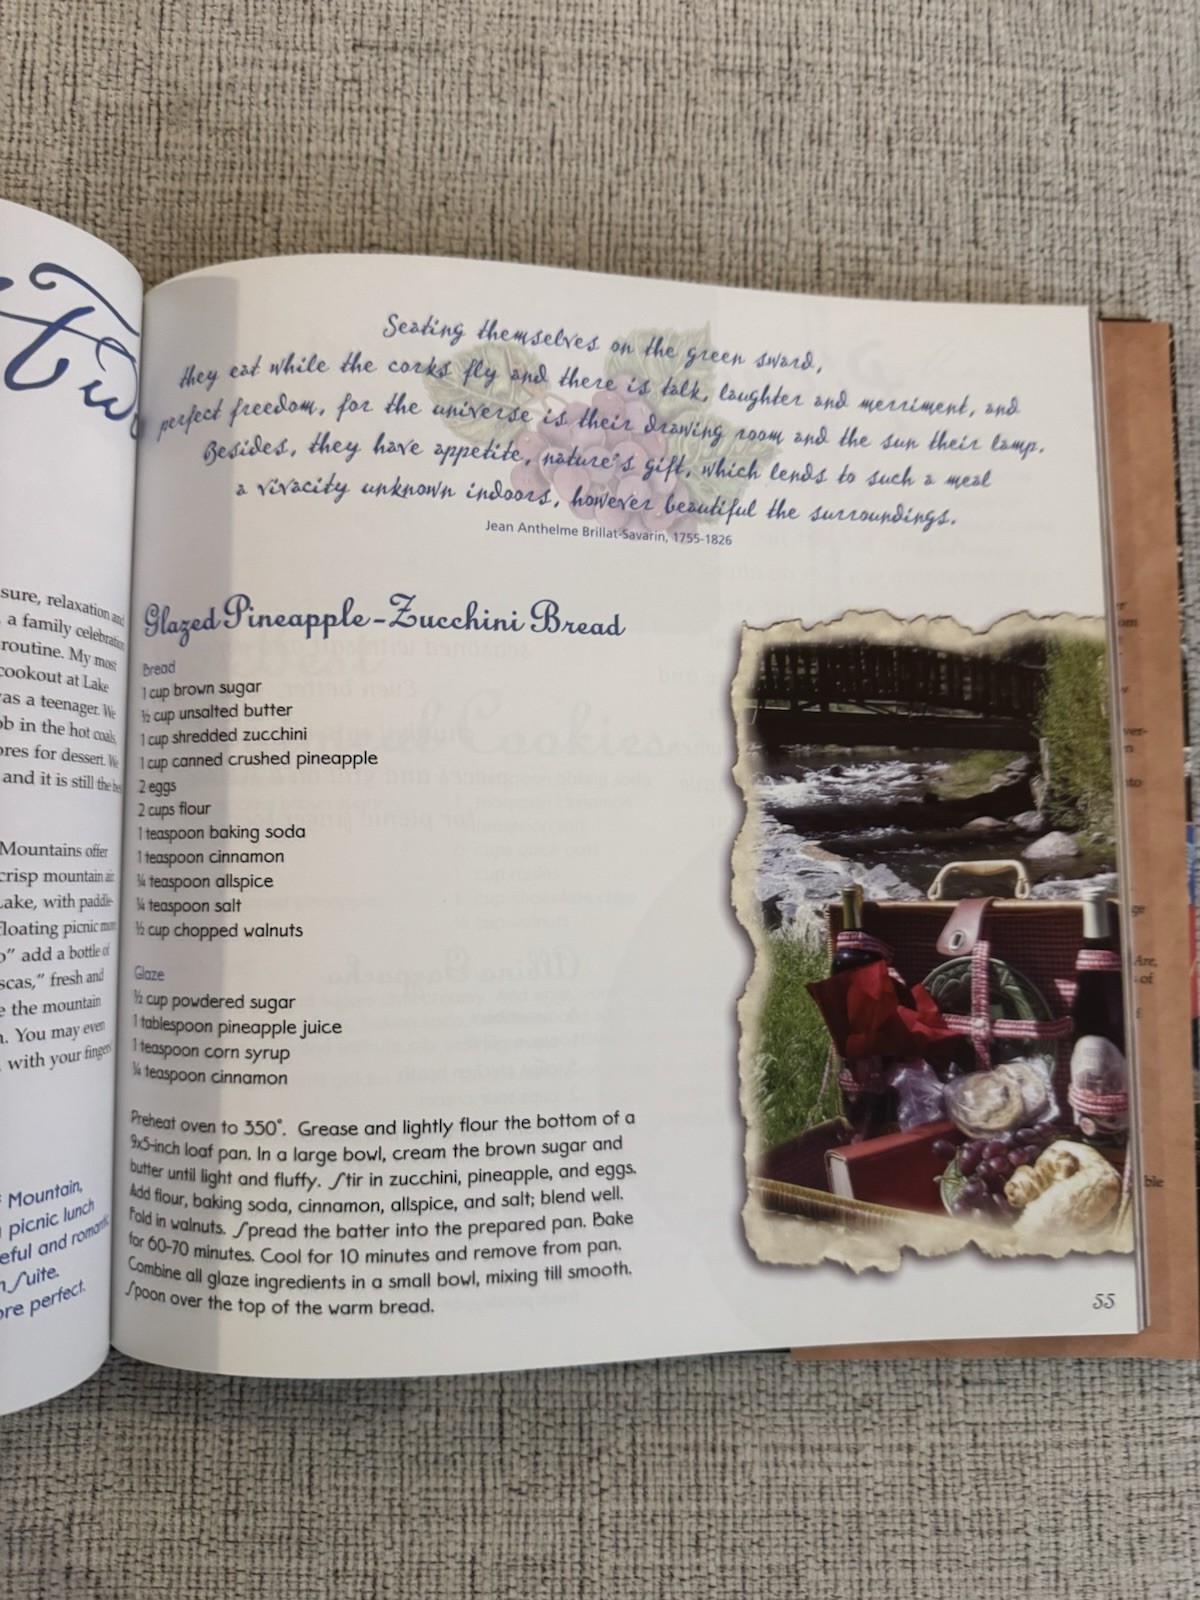 Tw
sure, relaxation and
a family celebration
routine. My most
cookout at Lake
as a teenager. We
ob in the hot coals,
ores for dessert. We
and it is still the be
Mountains offer
crisp mountain air
Lake, with paddle-
floating picnic more
o” add a bottle of
scas,” fresh and
e the mountain
n. You may even
with your fingers
Mountain,
picnic lunch
eful and romantic
n Suite.
ore perfect.
Seating themselves on the green sward,
they eat while the corks fly and there is talk, laughter and merriment, and
perfect freedom, for the universe is their drawing room and the sun their lamp.
Besides, they have appetite, nature's gift, which lends to such a meal
a vivacity unknown indoors, however beautiful the surroundings.
Jean Anthelme Brillat-Savarin, 1755-1826
Glazed Pineapple-Zucchini Bread
Bread
1 cup brown sugar
½ cup unsalted butter
1 cup shredded zucchini
1 cup canned crushed pineapple
2 eggs
2 cups flour
1 teaspoon baking soda
1 teaspoon cinnamon
¼ teaspoon allspice
¼ teaspoon salt
½ cup chopped walnuts
Glaze
½ cup powdered sugar
1 tablespoon pineapple juice
1 teaspoon corn syrup
¼ teaspoon cinnamon
Preheat oven to 350°. Grease and lightly flour the bottom of a
9x5-inch loaf pan. In a large bowl, cream the brown sugar and
butter until light and fluffy. Stir in zucchini, pineapple, and eggs.
Add flour, baking soda, cinnamon, allspice, and salt; blend well.
Fold in walnuts. Spread the batter into the prepared pan. Bake
for 60-70 minutes. Cool for 10 minutes and remove from pan.
Combine all glaze ingredients in a small bowl, mixing till smooth.
Spoon over the top of the warm bread.
55